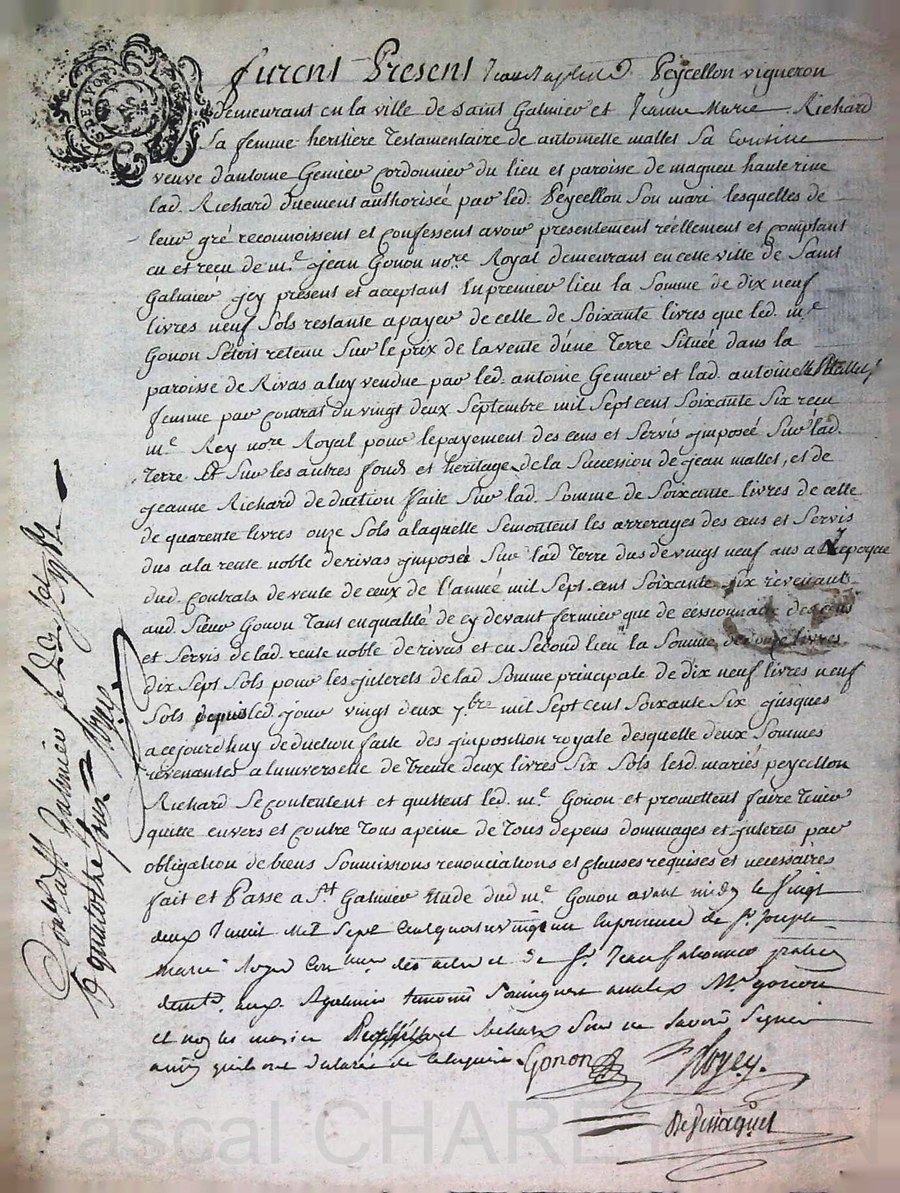 furent Present Jean Peycellon vigneron
demeurant en la ville de Saint Galmier et Jeanne Marie Richard
Sa femme heritiere Testamentaire de antoinette mallet Sa Cousine
veuve d'antoine Genier Cordonnier du lieu et paroisse de magneu hauterine
lad. Richard duement authorisée par led. Peycellon Son mari lesquelles de
leur gré reconnoissent et confessent avoir presentement réellement et comptant
eu et reçu de me. jean Gonon nore. Royal demeurant en cette ville de Saint
Galmier jcy present et acceptant En premier lieu la Somme de dix neuf
livres neuf Sols restante apayer de celle de Soixante livres que led. me.
Gonon S'étoit retenu Sur le prix de la vente d'une Terre Située dans la
paroisse de Rivas a luy vendue par led. antoine Genier et lad. antoinette Mallet
femme par contrat du vingt deux Septembre mil Sept cent Soixante Six reçu
me. Rey nore. Royal pour le payement des cens et Servis jmposé Sur lad.
Terre Et Sur les autres fonds et heritage de la Succession de jean mallet, et de
jeanne Richard deduction faite Sur lad. Somme de Soixante livres de celle
de quarente livres onze Sols a laquelle Semontent les arrerages des cens et Servis
dus a la rente noble de rivas jmposés Sur lad Terre dus de vingt neuf ans a L'epoque
dud. Contrats de vente de ceux de l'année mil Sept. cent Soixante Six revenants
aud. Sieur Gonon Tant en qualité de cy devant fermier que de cessionnaire des cens
et Servis de lad. rente noble de rivas et en Second lieu la Somme de onze livres
dix Sept Sols pour les jnterets de lad Somme principale de dix neuf livres neuf
Sols depuis led. jour vingt deux 7bre mil Sept cent Soixante Six jusques
a cejourd'huy deduction faite des jmposition royale desquelle deux Sommes
revenantes a l'universelle de Trente deux livres Six Sols lesd. mariés peycellon
Richard Se contentent et quittent led. me. Gonon et promettent faire Tenir
quitte envers et contre Tous a peine de Tous depens dommages et jnterets par
obligation de biens Soumissions renonciations et clauses requises et necessaires
fait et Passé a St. Galmier Etude dud me. Gonon avant midy le Vingt
deux mil Sept Cent quatrevingt un En presence de Sr. Joseph
marie Royer des et de Sr. Jean
demts. aud. St galmier Temoins Soussignés avec led. Me. gonon
et non les mariés et Richard Pour ne Savoir Signer
ainsi qu'ils ont declaré de ce requis. Gonon Royer.
Controllé a St Galmier le
quatorze Sous Royer
DE LYON
Pascal CHAREYRON